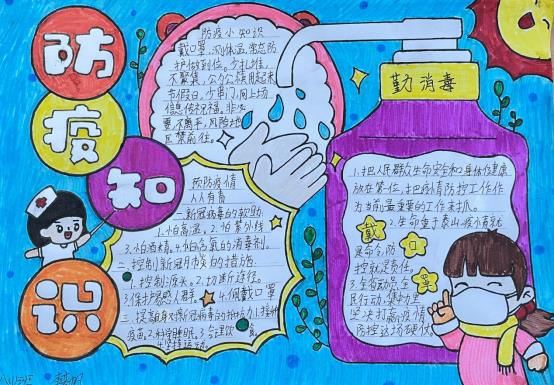 防
疫
知
识
防疫小知识
戴口罩,测体温,常态防
护做到位。少扎堆,
不聚集,公勺公筷用起来
节假日,少串门,网上场
信息传祝福。非必
要不离开,风险地
区禁前往。
勤消毒
预防疫情
人人有责
一.新冠病毒的软肋.
1.怕高温。2.怕紫外线
3.怕酒精。4.怕含氯的消毒剂。
二.控制新冠肺炎的措施.
1.控制源头。2.切断途径。
3.保护易感人群。4.佩戴口罩
三.提高身对新冠病毒的抵抗力1.接种
疫苗.2.科学睡眠,3.合理饮食
4.坚持运动。
1.把人民群众生命安全和身体健康
放在第一位,把疫情防控工作作
为当前最重要的工作来抓。
2.生命重于泰山.疫情就
是命令,防
控就是责任。
3.全省动员,全
民行动,集物里
坚决打赢疫情
防控这场硬仗
戴
口
罩